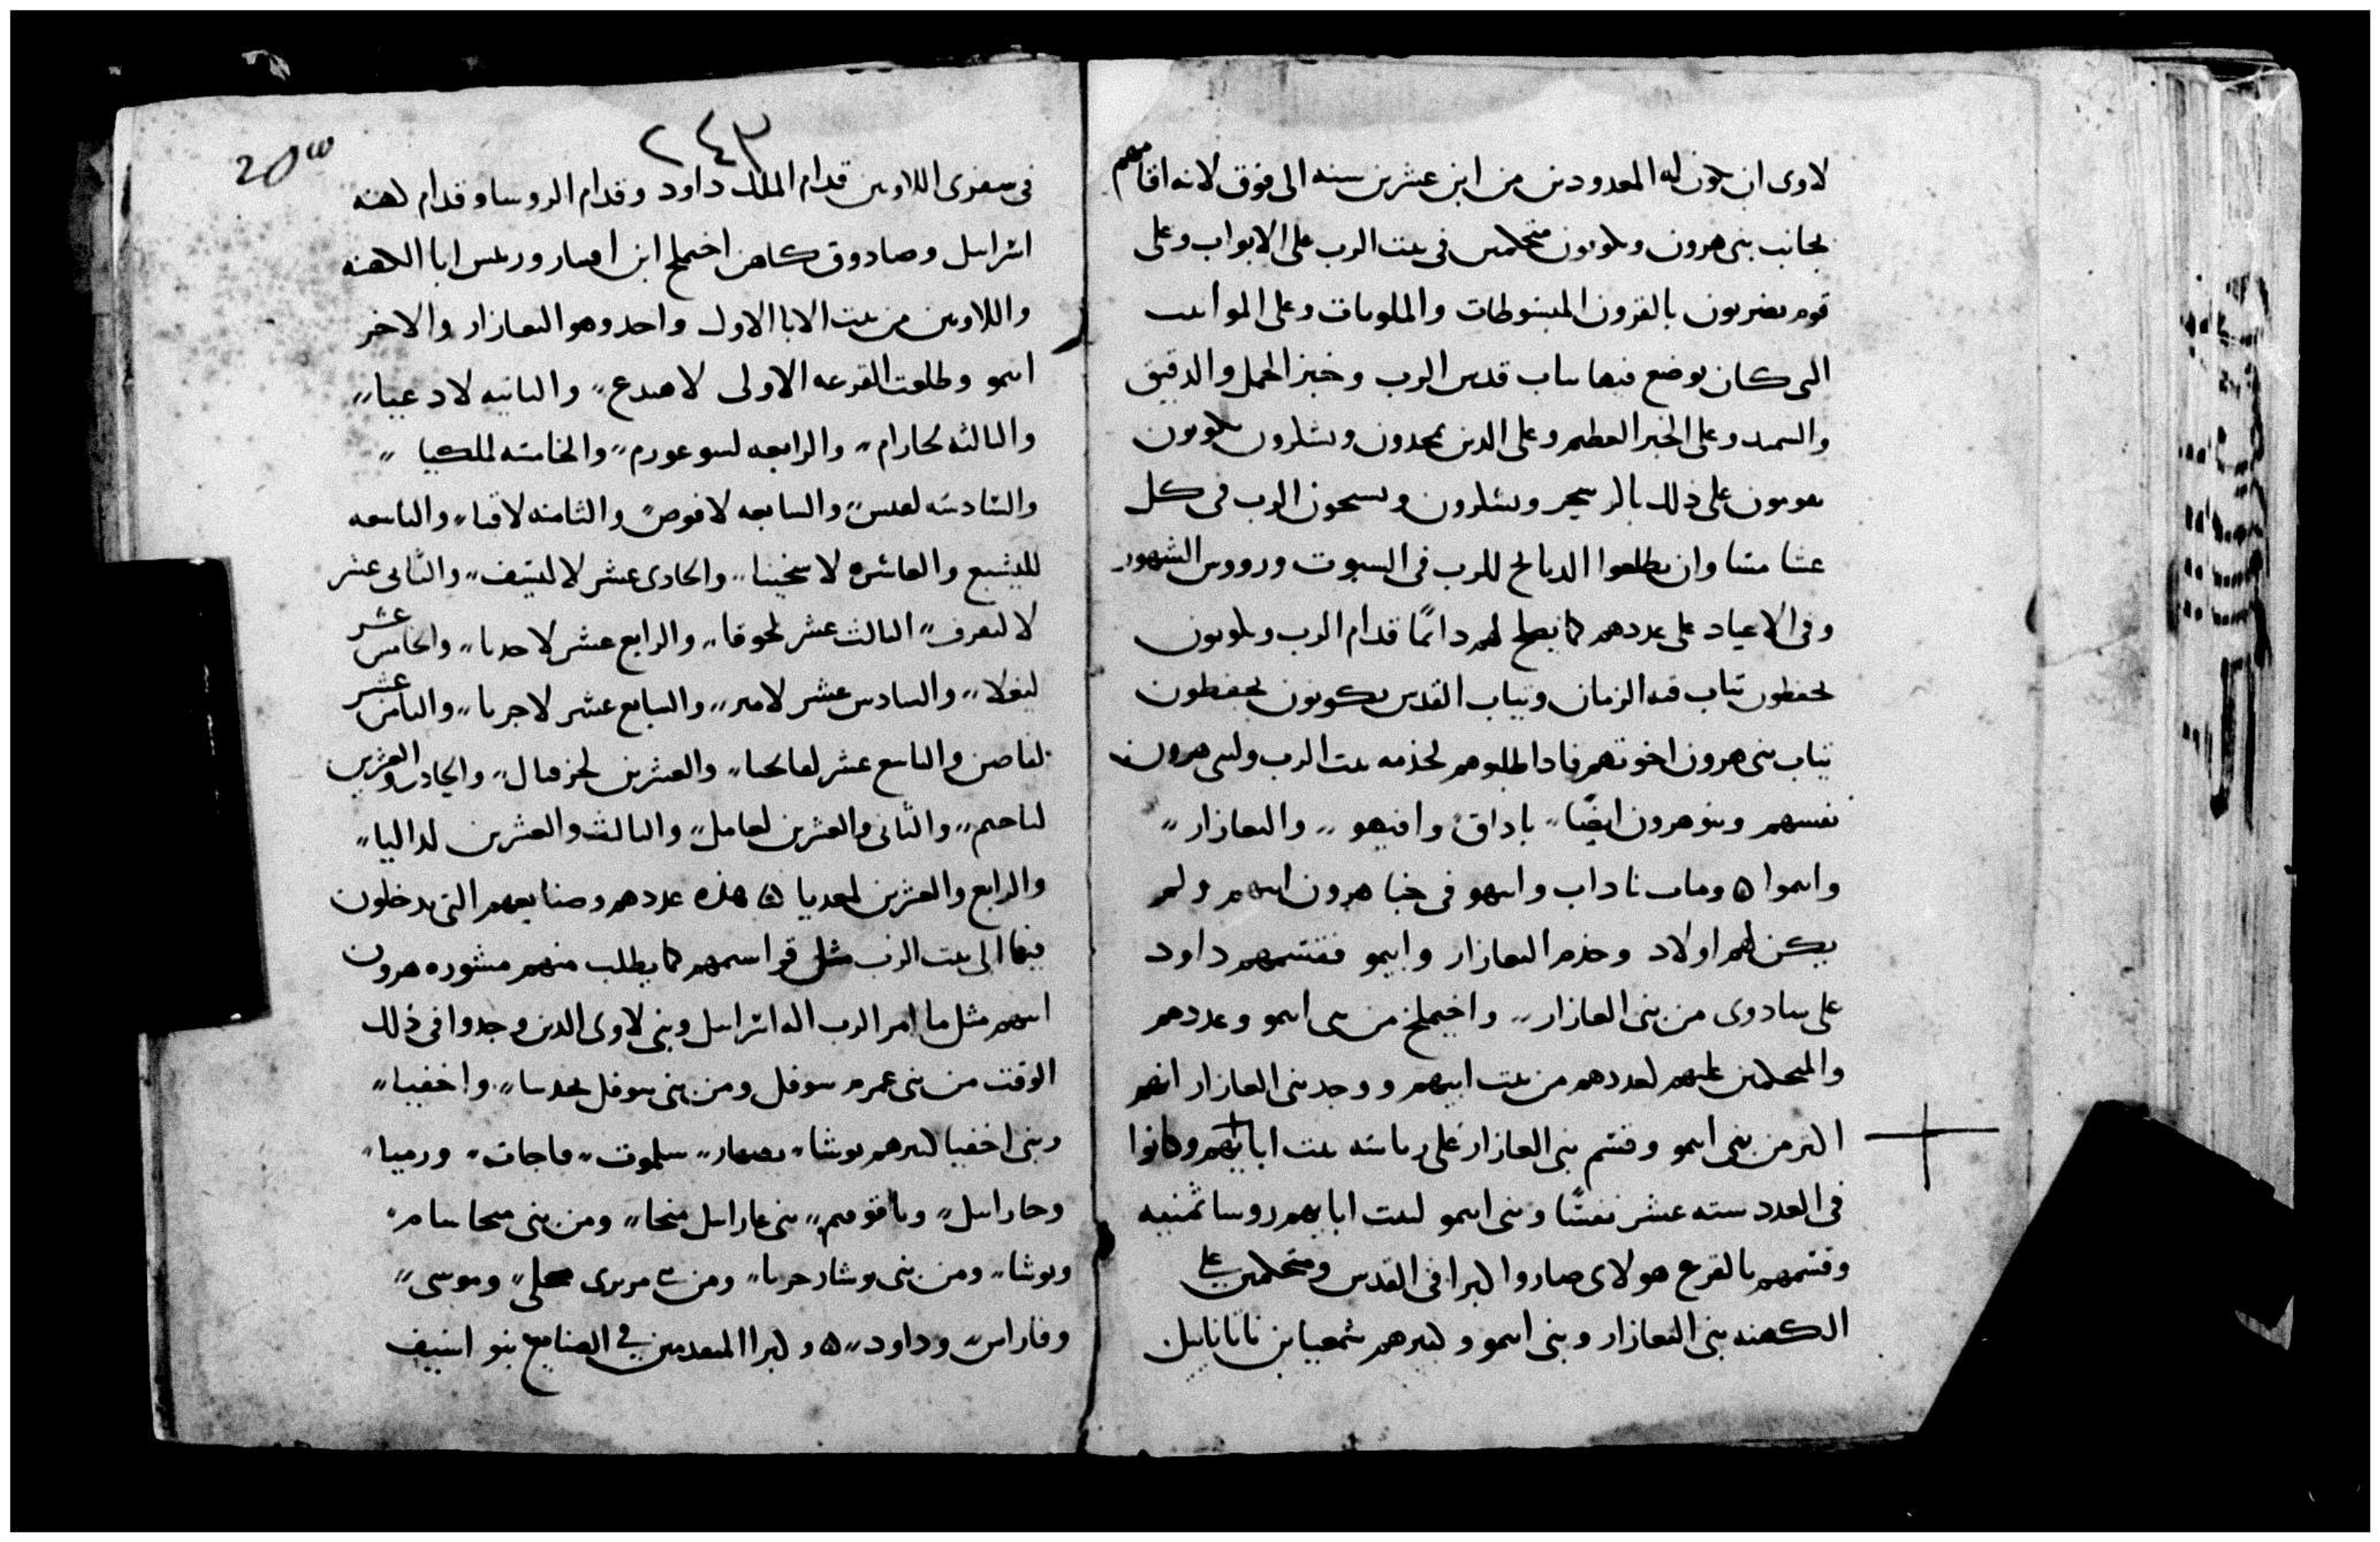 لاوى ان يكون له المعدودين من ابن عشرين سنه الى فوق لانه اقامهم
بجانب بنى هرون ويكونون متحكمين فى بيت الرب على الابواب وعلى
قوم يضربون بالقرون المبسوطات والملويات وعلى المواضع
التى كان يوضع فيها ثياب قدس الرب وخبز الحمل والدقيق
والسميد وعلى الخبز الفطير وعلى الذين يمجدون ويشكرون يكونون
يقومون على ذلك بالر ويشكرون ويسبحون الرب فى كل
عشا مسا وان يطلعوا الدبايح للرب فى السبوت ورووس الشهور
وفى الاعياد على عددهم كما يصلح لهم دائمًا قدام الرب ويكونون
يحفظون ثياب قبه الزمان وثياب القدس يكونون يحفظون
ثياب بنى هرون اخوتهم فادا طلبوهم لخدمه بيت الرب ولبنى هرون
نفسهم وبنو هرون ايضًا،، ناداق وافيهو،، والعازار،،
وايموا ٥ ومات ناداب وابيهو فى حيا هرون ابيهم ولم
يكن لهم اولاد وخدم العازار وايمو فقسمهم داود
على سادوى من بنى العازار،، واخيملخ من بنى ايمو وعددهم
والمتحكمين عليهم لعددهم من بيت ابيهم ووجد بنى العازار انهم
اكثر من بنى ايمو وقسم بنى العازار على رياسه بيت ابايهم وكانوا
فى العدد سته عشر نفسًا وبنى ايمو لبيت ابايهم روسا ثمنيه
وقسمهم بالقرع هولاى صاروا كبرا فى القدس ومتحكمين على
الكهنه بنى العازار وبنى ايمو وكبيرهم شمعيا بن ناتانايل
٢٤٣
فى سفرى اللاويين قدام الملك داود وقدام الروسا وقدام كهنه
اسراييل وصادوق كاهن اخيملخ ابن ابيتار وريس ابا الكهنه
واللاويين من بيت الابا الاول واحد وهو العازار والاخر
ايمو وطلعت القرعه الاولى لاهيدع،، والثانيه لادعيا،،
والثالثه لحارام،، والرابعه لسوعورم،، والخامسه لملكيا،،
والسادسه لعيس،، والسابعه لاقوص،، والثامنه لاقيا،، والتاسعه
لليشيع والعاشره لاسخينا،، والحادى عشر لاليسف،، والثانى عشر
لاليعرف،، الثالث عشر لحوفا،، والرابع عشر لاحدبا،، والخامس عشر
لبغلا،، والسادس عشر لامير،، والسابع عشر لاجربا،، والثامن عشر
لفاصن والتاسع عشر لفاتحيا،، والعشرين لحزقيال،، والحادى والعشرين
لناحيم،، والثانى والعشرين لعامل،، والثالث والعشرين لداليا،،
والرابع والعشرين لمعديا ۞ هذه عددهم وصنايعهم التى يدخلون
فيها الى بيت الرب مثل قراسمهم كما يطلب منهم مشوره هرون
ابيهم مثل ما امر الرب اله اسراييل وبنى لاوى الذين وجدوا فى ذلك
الوقت من بنى عمرم سوفل ومن بنى سوفل يحدسا،، واخفيا،،
وبنى اخفيا كبيرهم يوشا،، يصهار،، سلموت،، ماجات،، ورميا،،
وحاراسل،، وياقوميم،، بنى عاراسل ميخا،، ومن بنى ميخا سامر
ويوشا،، ومن بنى يوشا زخريا،، ومن بنى مررى محلى،، وموسى،،
وفاراس،، وداود،، ٥ وكبرا المتقدمين فى الصنايع بنو اسيف